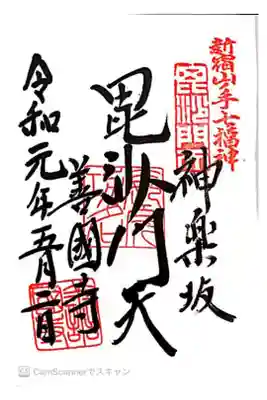 新宿山手七福神
神楽坂
毘沙門天
善國寺
令和元年五月
CamScannerでスキャン